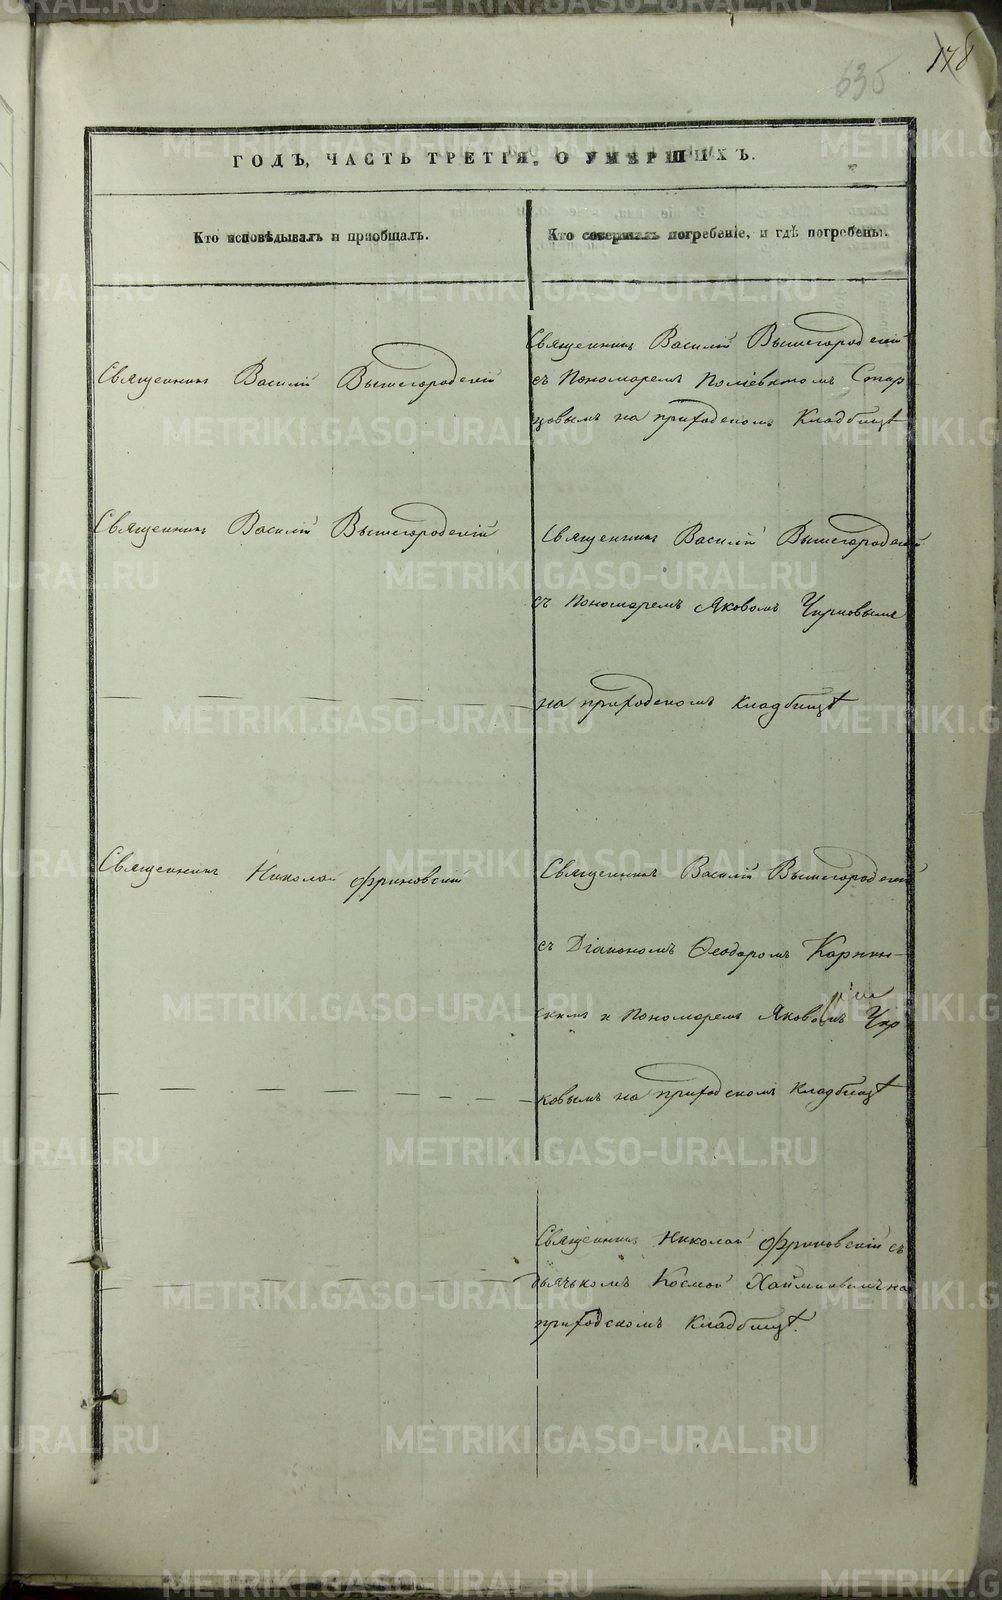 178
635
ГОДЪ, ЧАСТЬ ТРЕТІЯ, О УМЕРШИХЪ.
Кто исповѣдывалъ и приобщалъ.
Кто совершалъ погребеніе, и гдѣ погребены.
Священникъ Василій Вышегородскій
Священникъ Василій Вышегородскій
съ Пономаремъ Поліевктомъ Стар
цовымъ на приходскомъ Кладбищѣ
Священникъ Василій Вышегородскій
Священникъ Василій Вышегородскій
съ Пономаремъ Яковомъ Чирковымъ
на приходскомъ кладбищѣ
Священникъ Николай Фриновскій
Священникъ Василій Вышегородскій
съ Діакономъ Ѳеодоромъ Карпин-
скимъ и Пономаремъ Яковомъ Чир
ковымъ на приходскомъ кладбищѣ
Священникъ Николай Фриновскій съ
дьячькомъ Космой на
приходскомъ кладбищѣ.
METRIKI.GASO-URAL.RU